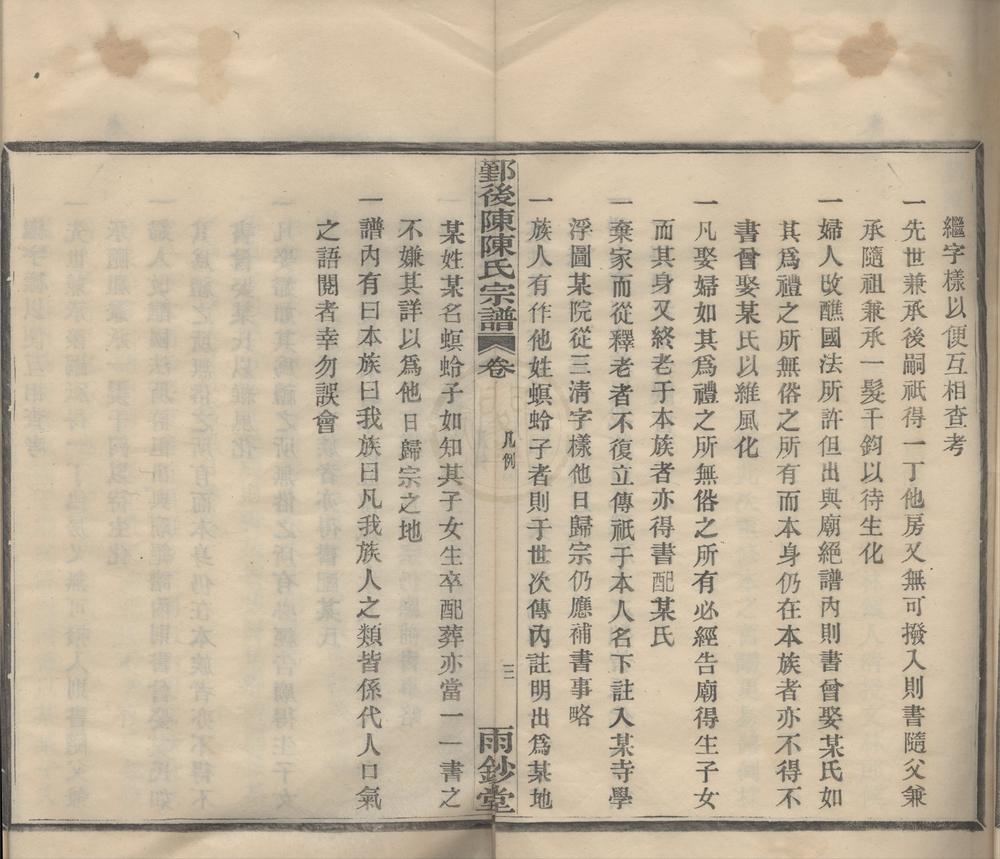 繼字樣以便互相查考
一先世兼承後嗣祇得一丁他房又無可撥入則書隨父兼
承隨祖兼承一髮千鈞以待生化
一婦人改醮國法所許但出與廟絕譜內則書曾娶某氏如
其爲禮之所無俗之所有而本身仍在本族者亦不得不
書曾娶某氏以維風化
一凡娶婦如其爲禮之所無俗之所有必經告廟得生子女
而其身又終老于本族者亦得書配某氏
一棄家而從釋老者不復立傳祇于本人名下註入某寺學
浮圖某院從三清字樣他日歸宗仍應補書事略
一族人有作他姓螟蛉子者則于世次傳內註明出爲某地
鄞後陳陳氏宗譜
卷
凡例
三
雨鈔堂
某姓某名螟蛉子如知其子女生卒配葬亦當一一書之
不嫌其詳以爲他日歸宗之地
一譜內有曰本族曰我族曰凡我族人之類皆係代人口氣
之語閱者幸勿誤會